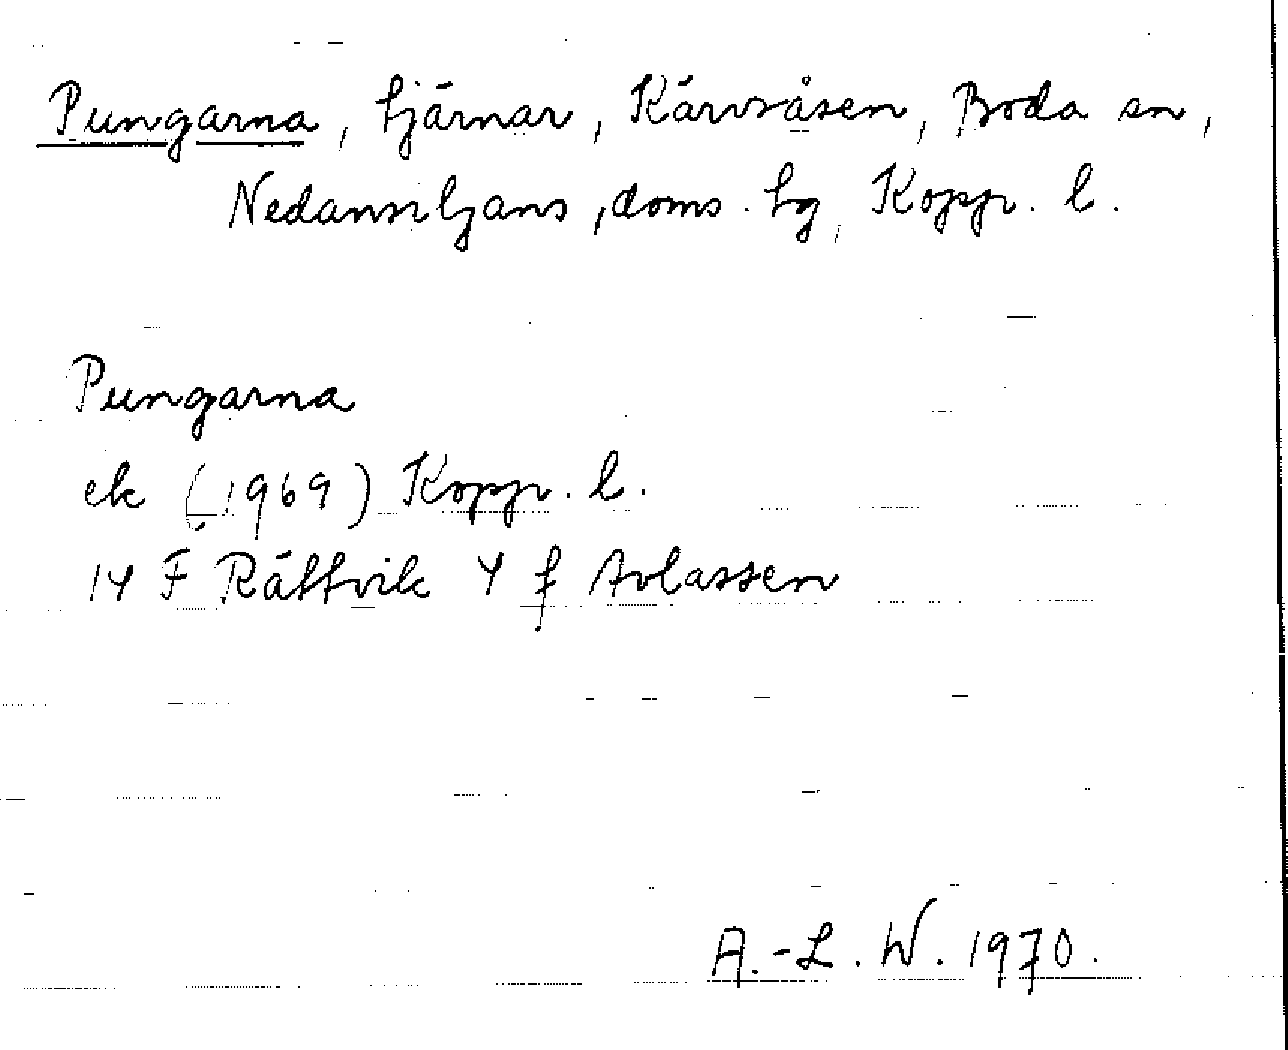 Pungarna, tjärnar, Kärvsåsen, Boda sn,
Nedansiljans, doms. tg, Kopp. l.
Pungarna
ek (1969) Kopp. l.
14 F Rättvik 4 f Avlassen
A.-L. W. 1970.